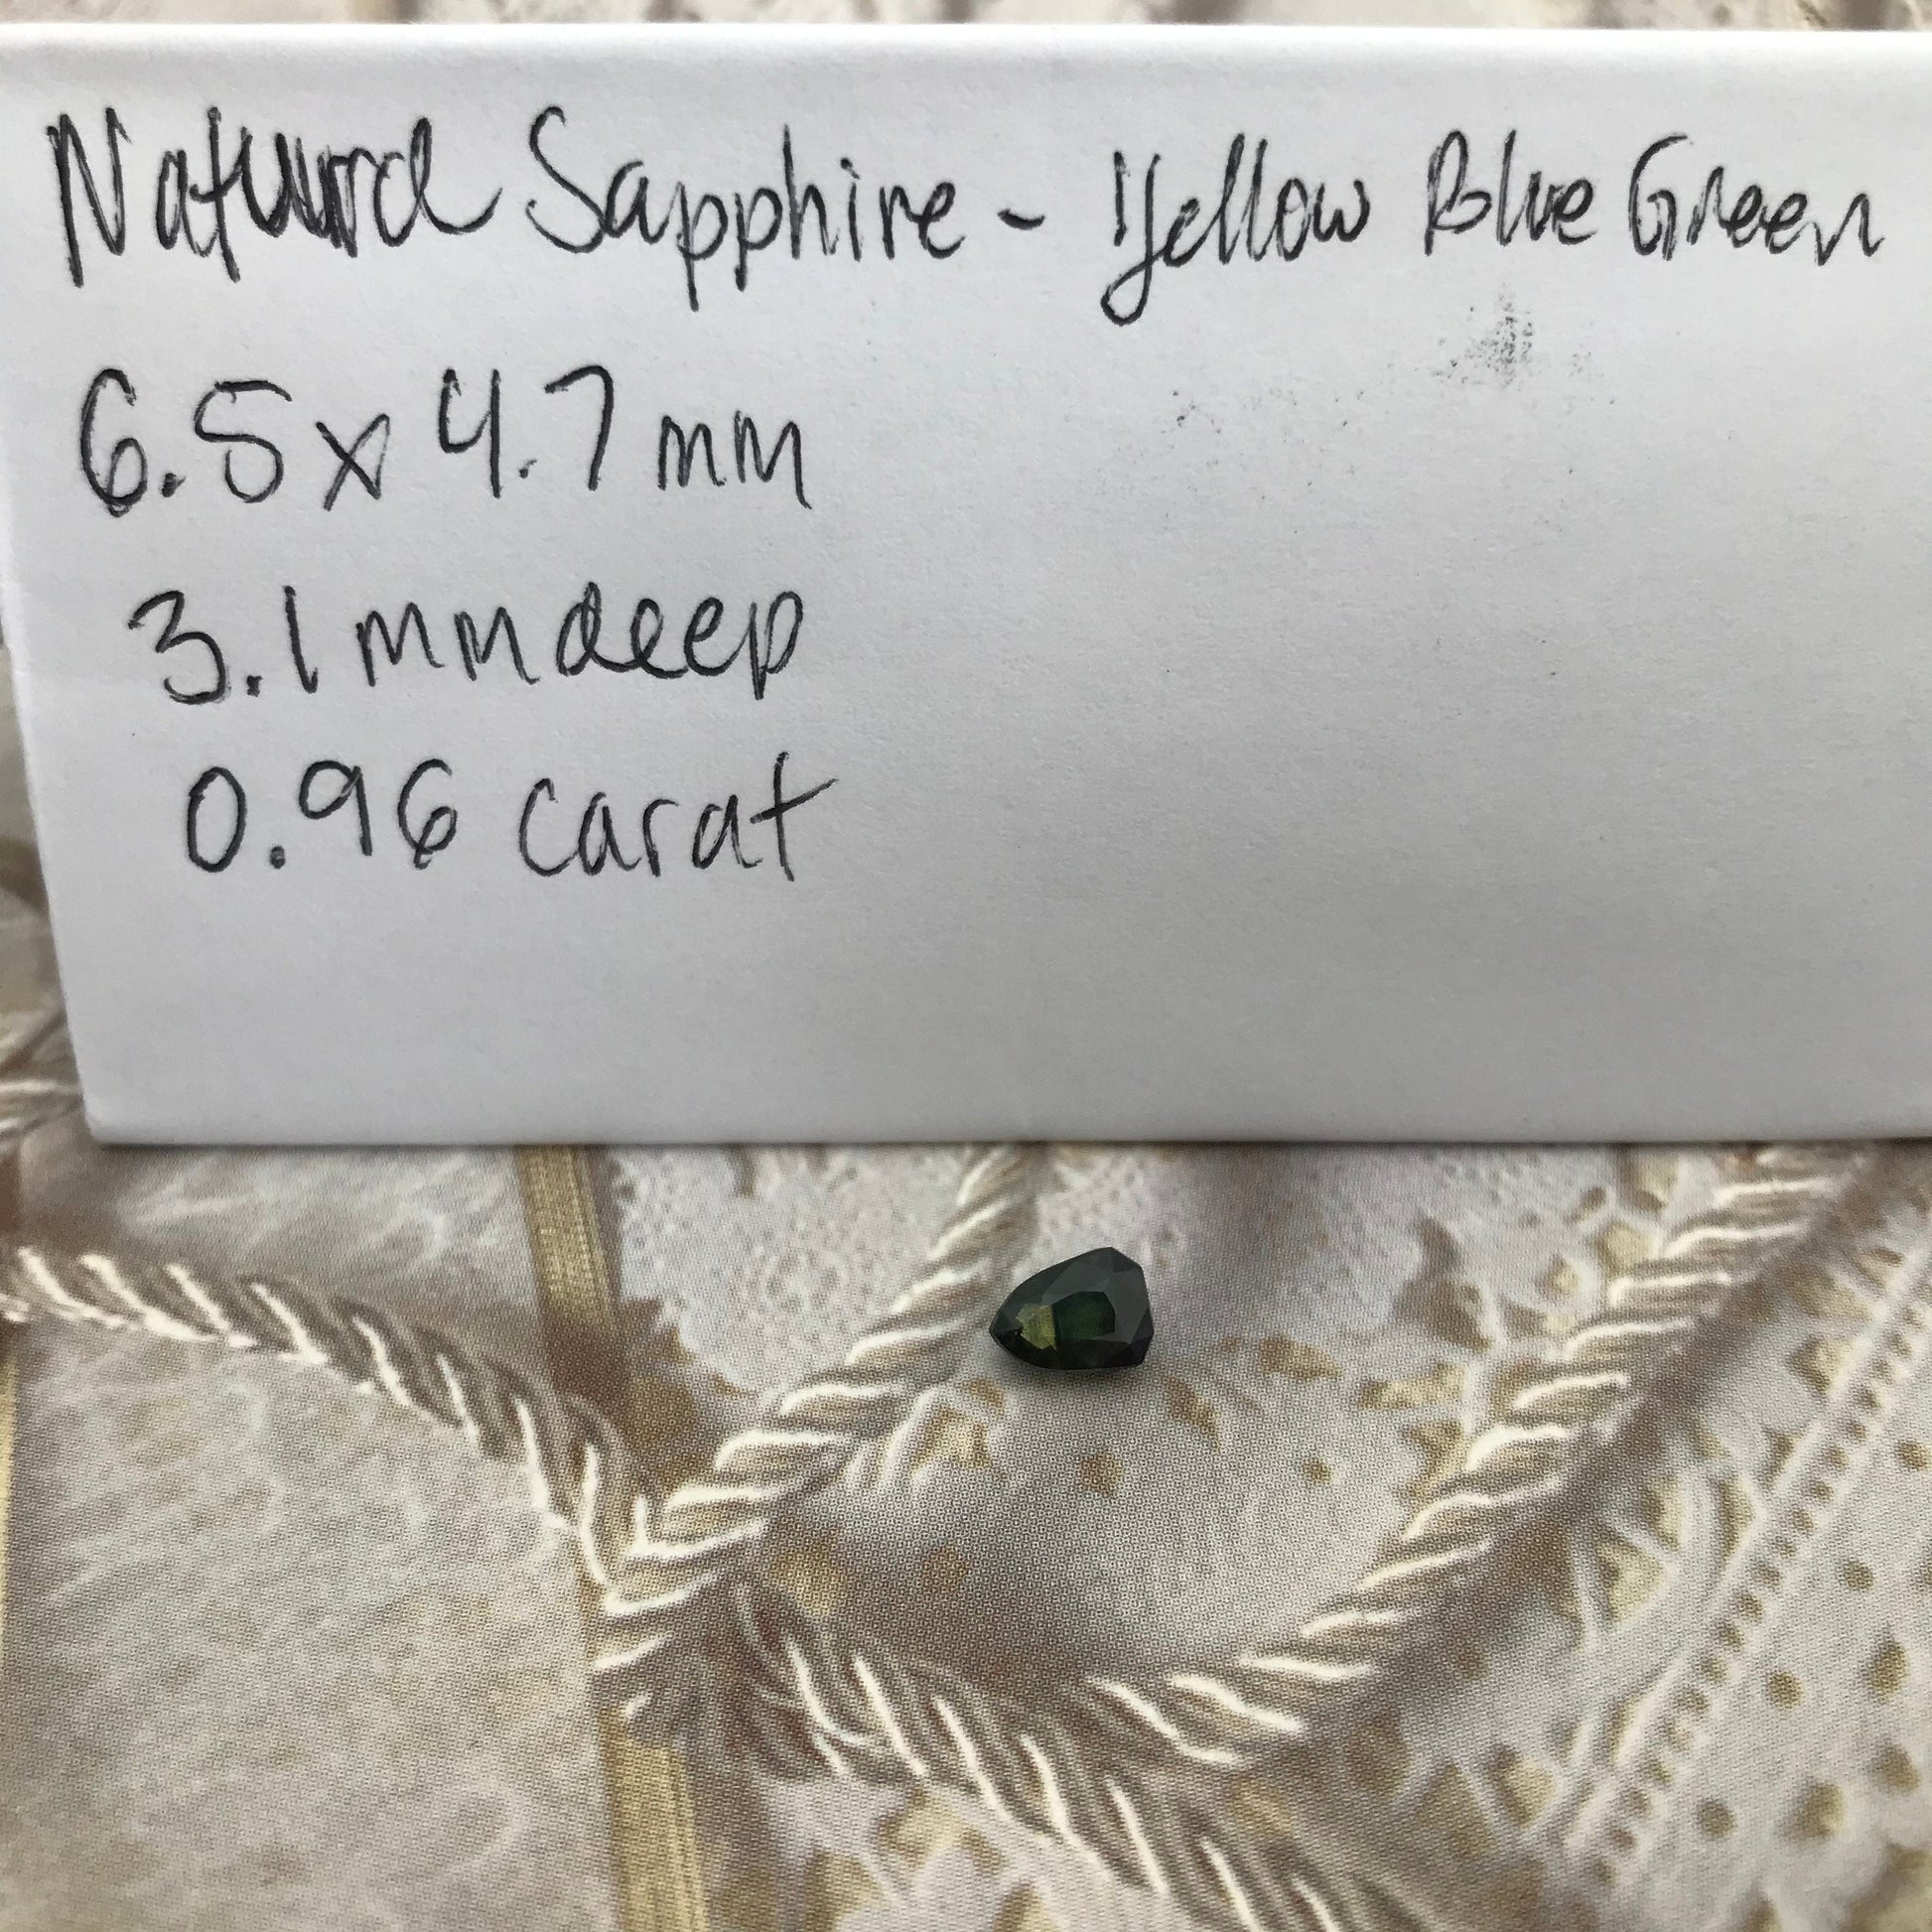 Natural Sapphire - Yellow Blue Green
6.5 x 4.7 mm
3.1 mm deep
0.96 carat